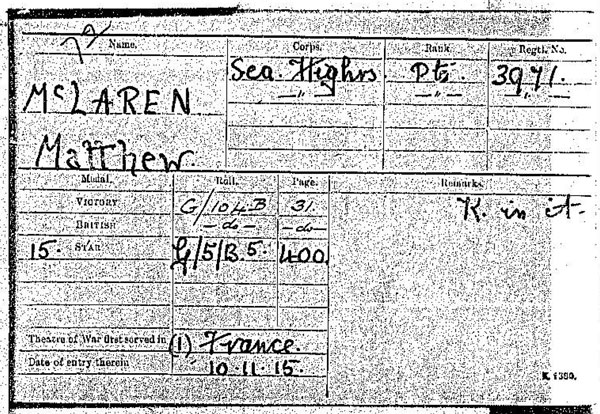 Name. Corps. Rank. Regtl. No.
McLAREN Sea. Highrs Pte. 3971.
Matthew — " — — " — — " —
Medal. Roll. Page. Remarks.
VICTORY G/104B 31. K. in A.
BRITISH — do — — do —
15. STAR G/5/B.5. 400.
Theatre of War first served in (1) France.
Date of entry therein 10.11.15.
K. 1380.